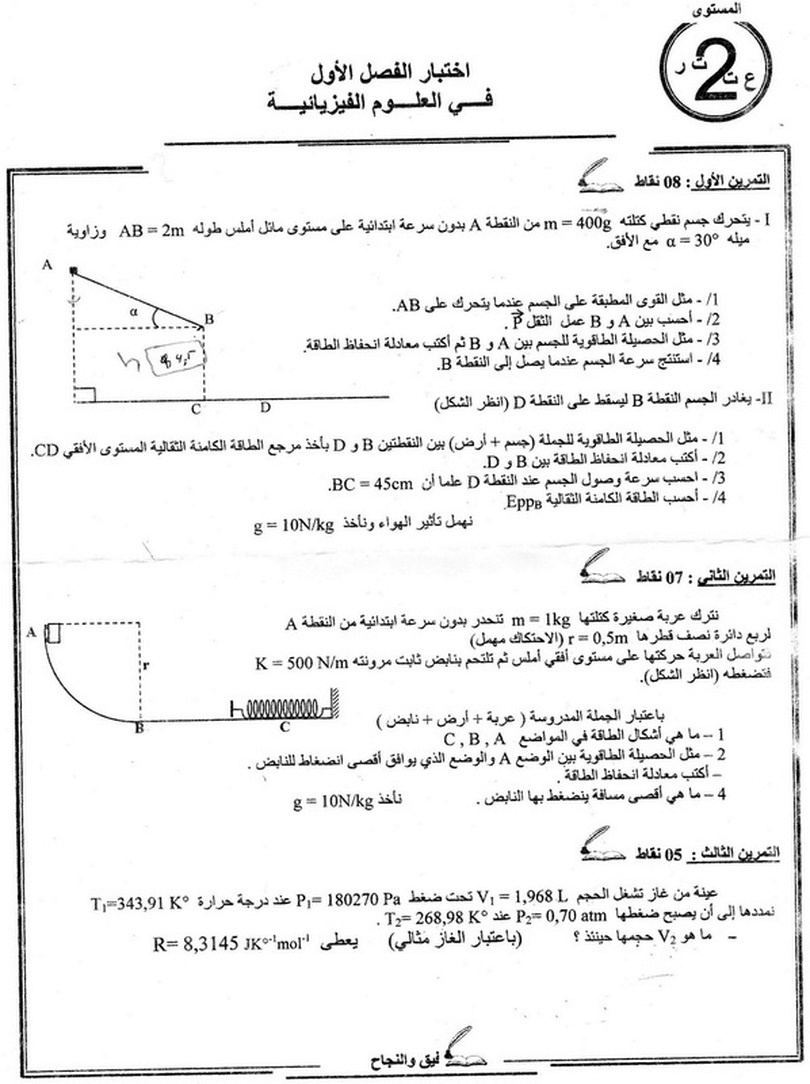 المستوى
2
ع ت ت ر
اختبار الفصل الأول
في العلوم الفيزيائية
التمرين الأول : 08 نقاط
I - يتحرك جسم نقطي كتلته m = 400g من النقطة A بدون سرعة ابتدائية على مستوى مائل أملس طوله AB = 2m وزاوية
ميله α = 30° مع الأفق.
A
α
B
C
D
1/- مثل القوى المطبقة على الجسم عندما يتحرك على AB.
2/- أحسب بين A و B عمل الثقل P⃗ .
3/- مثل الحصيلة الطاقوية للجسم بين A و B ثم أكتب معادلة انحفاظ الطاقة.
4/- استنتج سرعة الجسم عندما يصل إلى النقطة B.
II- يغادر الجسم النقطة B ليسقط على النقطة D (انظر الشكل)
1/- مثل الحصيلة الطاقوية للجملة (جسم + أرض) بين النقطتين B و D بأخذ مرجع الطاقة الكامنة الثقالية المستوى الأفقي CD.
2/- أكتب معادلة انحفاظ الطاقة بين B و D.
3/- احسب سرعة وصول الجسم عند النقطة D علما أن BC = 45cm.
4/- أحسب الطاقة الكامنة الثقالية EppB.
نهمل تأثير الهواء ونأخذ g = 10N/kg
التمرين الثاني : 07 نقاط
نترك عربة صغيرة كتلتها m = 1kg تنحدر بدون سرعة ابتدائية من النقطة A
لربع دائرة نصف قطرها r = 0,5m (الاحتكاك مهمل)
تتواصل العربة حركتها على مستوى أفقي أملس ثم تلتحم بنابض ثابت مرونته K = 500 N/m
فتضغطه (انظر الشكل).
A
r
B
C
باعتبار الجملة المدروسة ( عربة + أرض + نابض )
1 – ما هي أشكال الطاقة في المواضع C , B , A
2 – مثل الحصيلة الطاقوية بين الوضع A والوضع الذي يوافق أقصى انضغاط للنابض .
– أكتب معادلة انحفاظ الطاقة .
4 – ما هي أقصى مسافة ينضغط بها النابض . نأخذ g = 10N/kg
التمرين الثالث : 05 نقاط
عينة من غاز تشغل الحجم V₁ = 1,968 L تحت ضغط P₁= 180270 Pa عند درجة حرارة T₁=343,91 K°
نمددها إلى أن يصبح ضغطها P₂= 0,70 atm عند T₂= 268,98 K° .
– ما هو V₂ حجمها حينئذ ؟ (باعتبار الغاز مثالي) يعطى R= 8,3145 JK°⁻¹mol⁻¹
فيق والنجاح